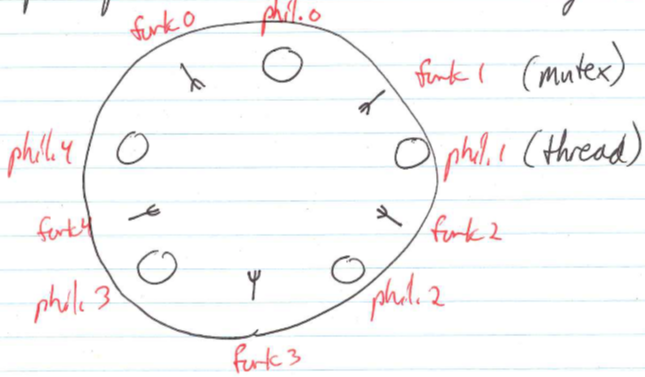 fork 0
phil. 0
fork 1 (mutex)
phil. 4
phil. 1 (thread)
fork 4
fork 2
phil. 3
phil. 2
fork 3